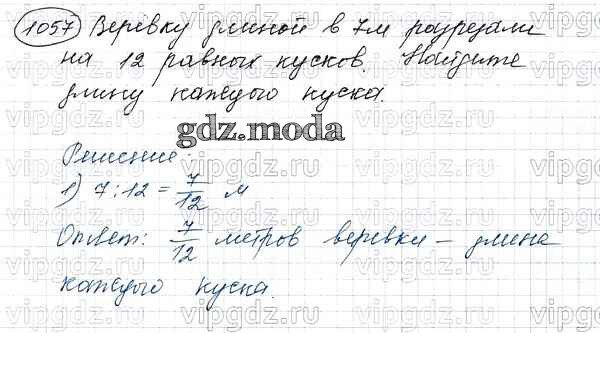 1057 Веревку длиной в 7м разрезали
на 12 равных кусков. Найдите
длину каждого куска.
gdz.moda
Решение:
1) 7:12 = 7/12 м
Ответ: 7/12 метров веревки – длина
каждого куска.
vipgdz.ru